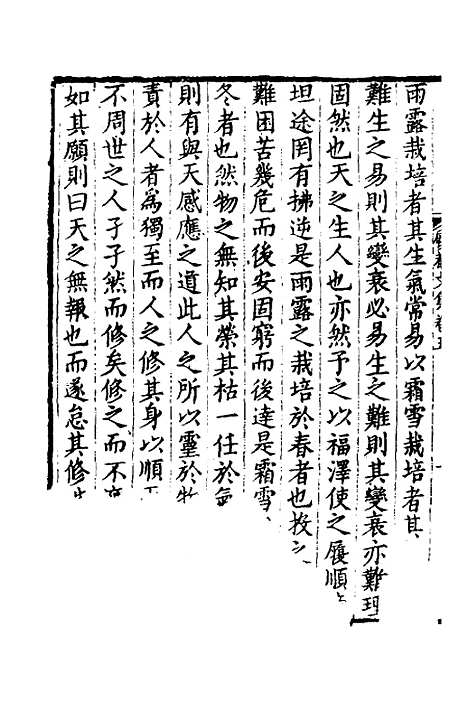 雨露栽培者其生氣常易以霜雪栽培者其
難生之易則其變衰必易生之難則其變衰亦難理
固然也天之生人也亦然予之以福澤使之履順
坦途罔有拂逆是雨露之栽培於春者也投之
難困苦幾危而後安固窮而後達是霜雪
冬者也然物之無知其榮其枯一任於氣
則有與天感應之道此人之所以靈於物
責於人者為獨至而人之修其身以順
不周世之人孑孑然而修矣修之而不
如其願則曰天之無報也而遂怠其修